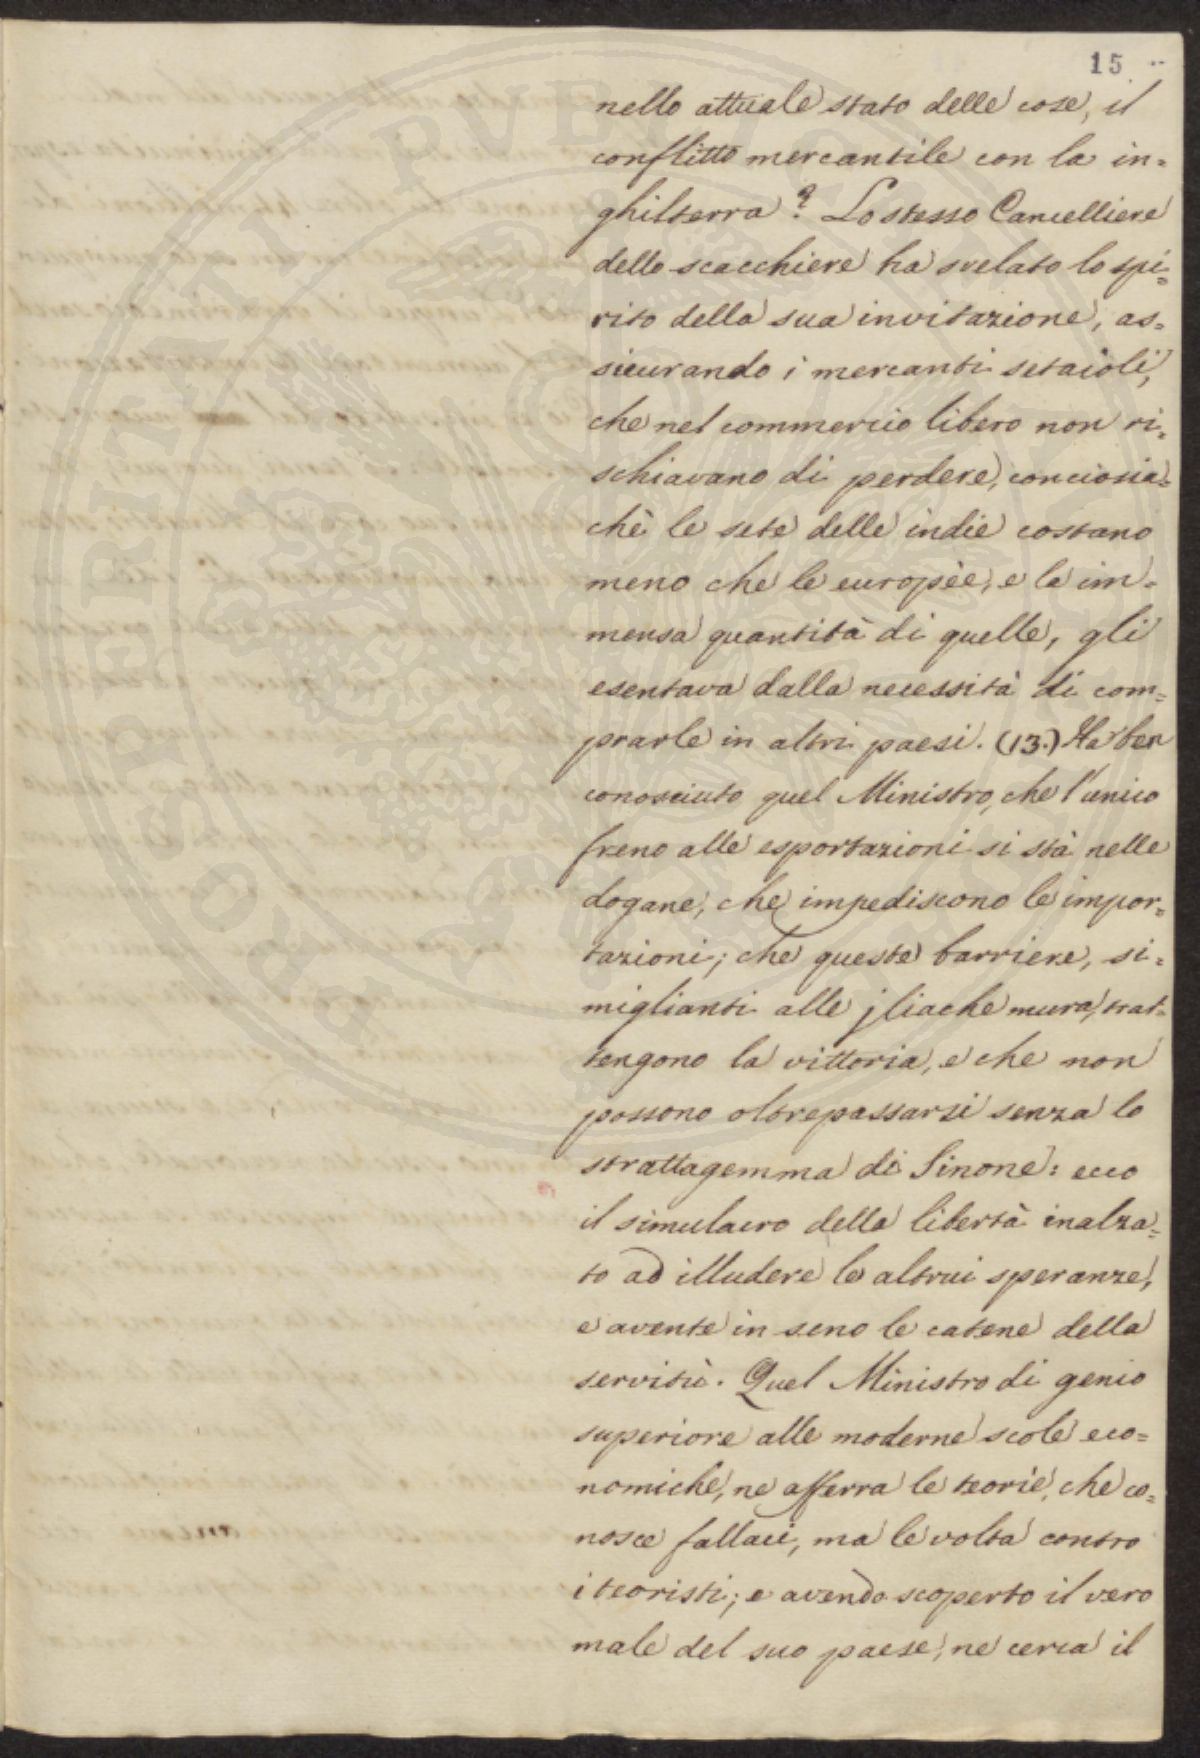 15
nello attuale stato delle cose, il
conflitto mercantile con la in=
ghilterra? Lo stesso Cancelliere
dello scacchiere ha svelato lo spi=
rito della sua invitazione, as=
sicurando i mercanti setaioli,
che nel commercio libero non ri=
schiavano di perdere, conciosia=
chè le sete delle indie costano
meno che le europèe, e la im=
mensa quantità di quelle, gli
esentava dalla necessità di com=
prarle in altri paesi. (13.) Ha ben
conosciuto quel Ministro, che l'unico
freno alle esportazioni si stà nelle
dogane, che impediscono le impor=
tazioni; che queste barriere, si=
miglianti alle jliache mura, trat=
tengono la vittoria, e che non
possono oltrepassarsi senza lo
strattagemma di Sinone: ecco
il simulacro della libertà inalza=
to ad illudere le altrui speranze,
e avente in seno le catene della
servitù. Quel Ministro di genio
superiore alle moderne scole eco=
nomiche, ne afferra le teorie, che co=
nosce fallaci, ma le volta contro
i teoristi; e avendo scoperto il vero
male del suo paese, ne cerca il
PROSPERITATI PVBLICAE